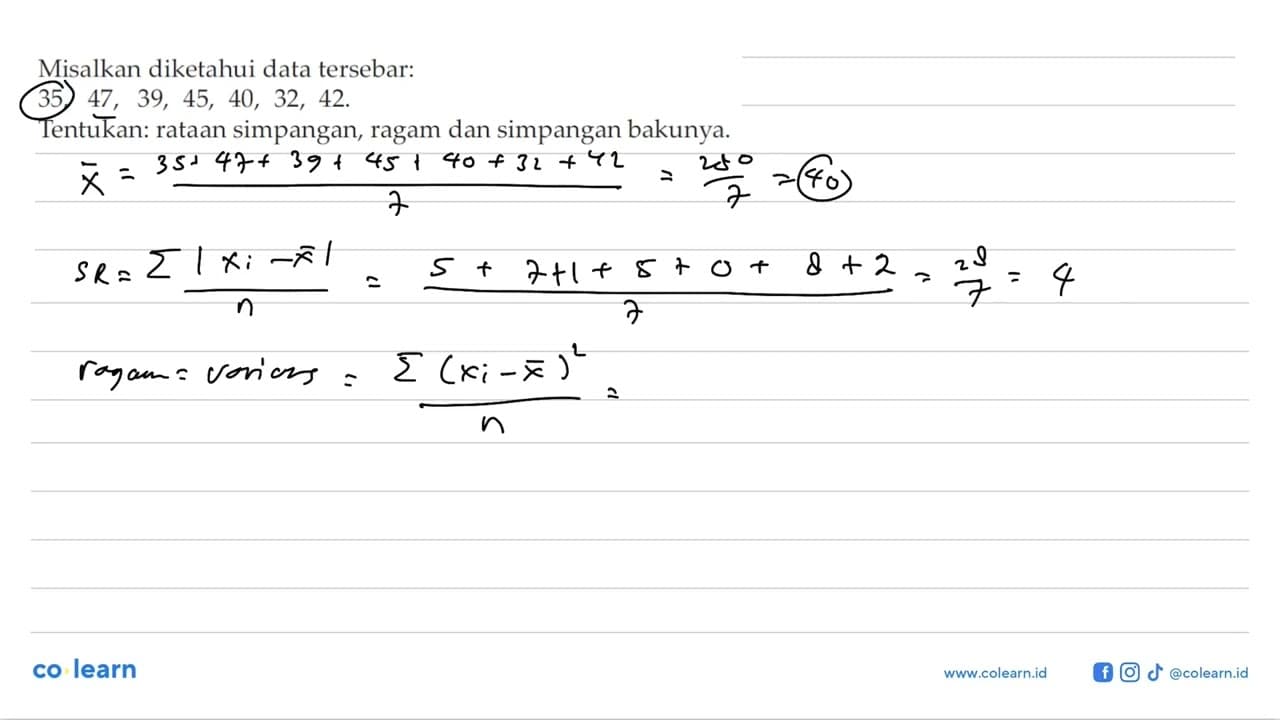 Misalkan diketahui data tersebar:
35, 47, 39, 45, 40, 32, 42.
Tentukan: rataan simpangan, ragam dan simpangan bakunya.
x̄ = (35 + 47 + 39 + 45 + 40 + 32 + 42) / 7 = 280 / 7 = 40
SR = Σ |xi - x̄| / n = (5 + 7 + 1 + 5 + 0 + 8 + 2) / 7 = 28 / 7 = 4
ragam = varians = Σ (xi - x̄)² / n =
co learn
www.colearn.id @colearn.id